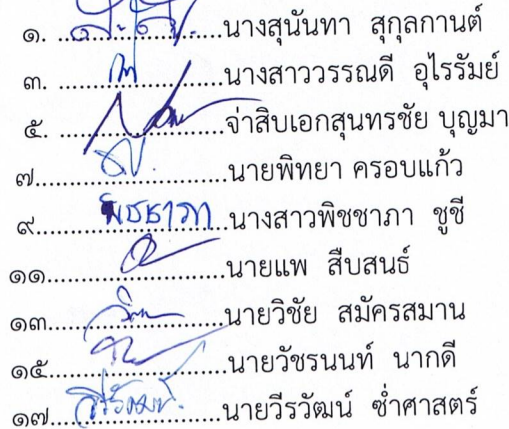 ๑. ....................นางสุนันทา สุกุลกานต์
๓. ....................นางสาววรรณดี อุไรรัมย์
๕. ....................จ่าสิบเอกสุนทรชัย บุญมา
๗....................นายพิทยา ครอบแก้ว
๙.......พิชชาภา.......นางสาวพิชชาภา ชูชี
๑๑....................นายแพ สืบสนธ์
๑๓....................นายวิชัย สมัครสมาน
๑๕....................นายวัชรนนท์ นากดี
๑๗....................นายวีรวัฒน์ ซ่ำศาสตร์